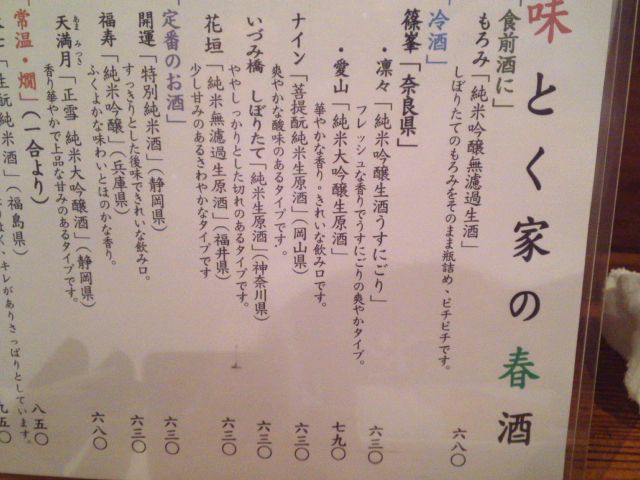 味とく家の春酒
「食前酒に」
もろみ「純米吟醸無濾過生酒」
しぼりたてのもろみをそのまま瓶詰め・ピチピチです。
六八〇
「冷酒」
篠峯「奈良県」
・凛々「純米吟醸生酒うすにごり」
フレッシュな香りでうすにごりの爽やかタイプ。
六三〇
・愛山「純米大吟醸生原酒」
華やかな香り。きれいな飲み口です。
七九〇
ナイン「菩提酛純米生原酒」(岡山県)
爽やかな酸味のあるタイプです。
六三〇
いづみ橋 しぼりたて「純米生原酒」(神奈川県)
ややしっかりとした切れのあるタイプです。
六三〇
花垣「純米無濾過生原酒」(福井県)
少し甘みのあるさわやかなタイプです
六三〇
「定番のお酒」
開運「特別純米酒」(静岡県)
すっきりとした後味できれいな飲み口。
六三〇
福寿「純米吟醸」(兵庫県)
ふくよかな味わいとほのかな香り。
六三〇
天満月「正雪 純米大吟醸酒」(静岡県)
あまみつき
香り華やかで上品な甘みのあるタイプです。
六八〇
「常温・燗」(一合より)
「生酛純米酒」(福島県)
八五〇
キレがありさっぱりとしています。
五〇